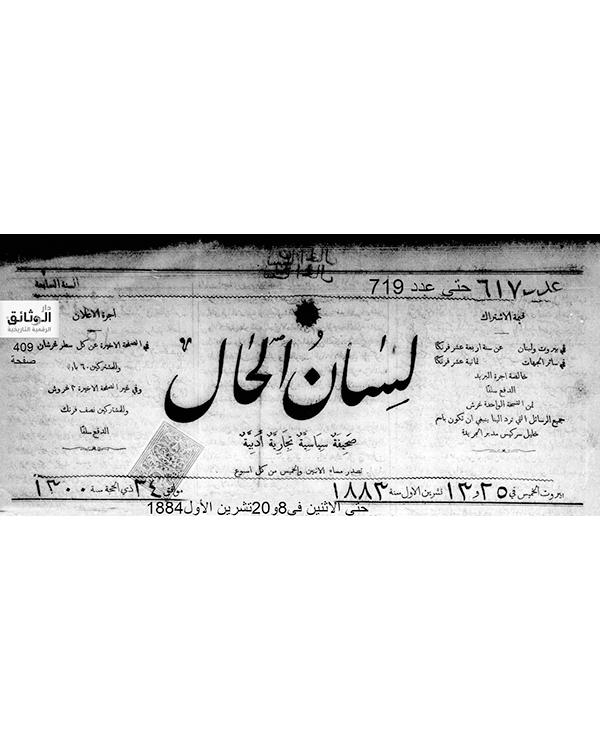 عدد ٦١٧ حتى عدد 719
السنة السابعة
دار
الوثائق
الرقمية التاريخية
قيمة الاشتراك
في بيروت ولبنان عن سنة اربعة عشر فرنكا
في سائر الجهات ثمانية عشر فرنكا
خالصة اجرة البريد
الدفع سلفا
ثمن النسخة الواحدة غرش
جميع الرسائل التي ترد الينا ينبغي ان تكون باسم
خليل سركيس مدير الجريدة
لسان الحال
صحيفة سياسية تجارية أدبية
تصدر مساء الاثنين والخميس من كل اسبوع
اجرة الاعلان
في الصفحة الاخيرة عن كل سطر غرشان
وللمشتركين ٦٠ بارة
وفي غير الصفحة الاخيرة ٣ غروش
وللمشتركين نصف فرنك
الدفع سلفا
409
صفحة
بيروت الخميس في ٢٥ و ١٣ تشرين الاول سنة ١٨٨٣ موافق ٢٤ ذي الحجة سنة ١٣٠٠
حتى الاثنين في8و20تشرين الأول1884